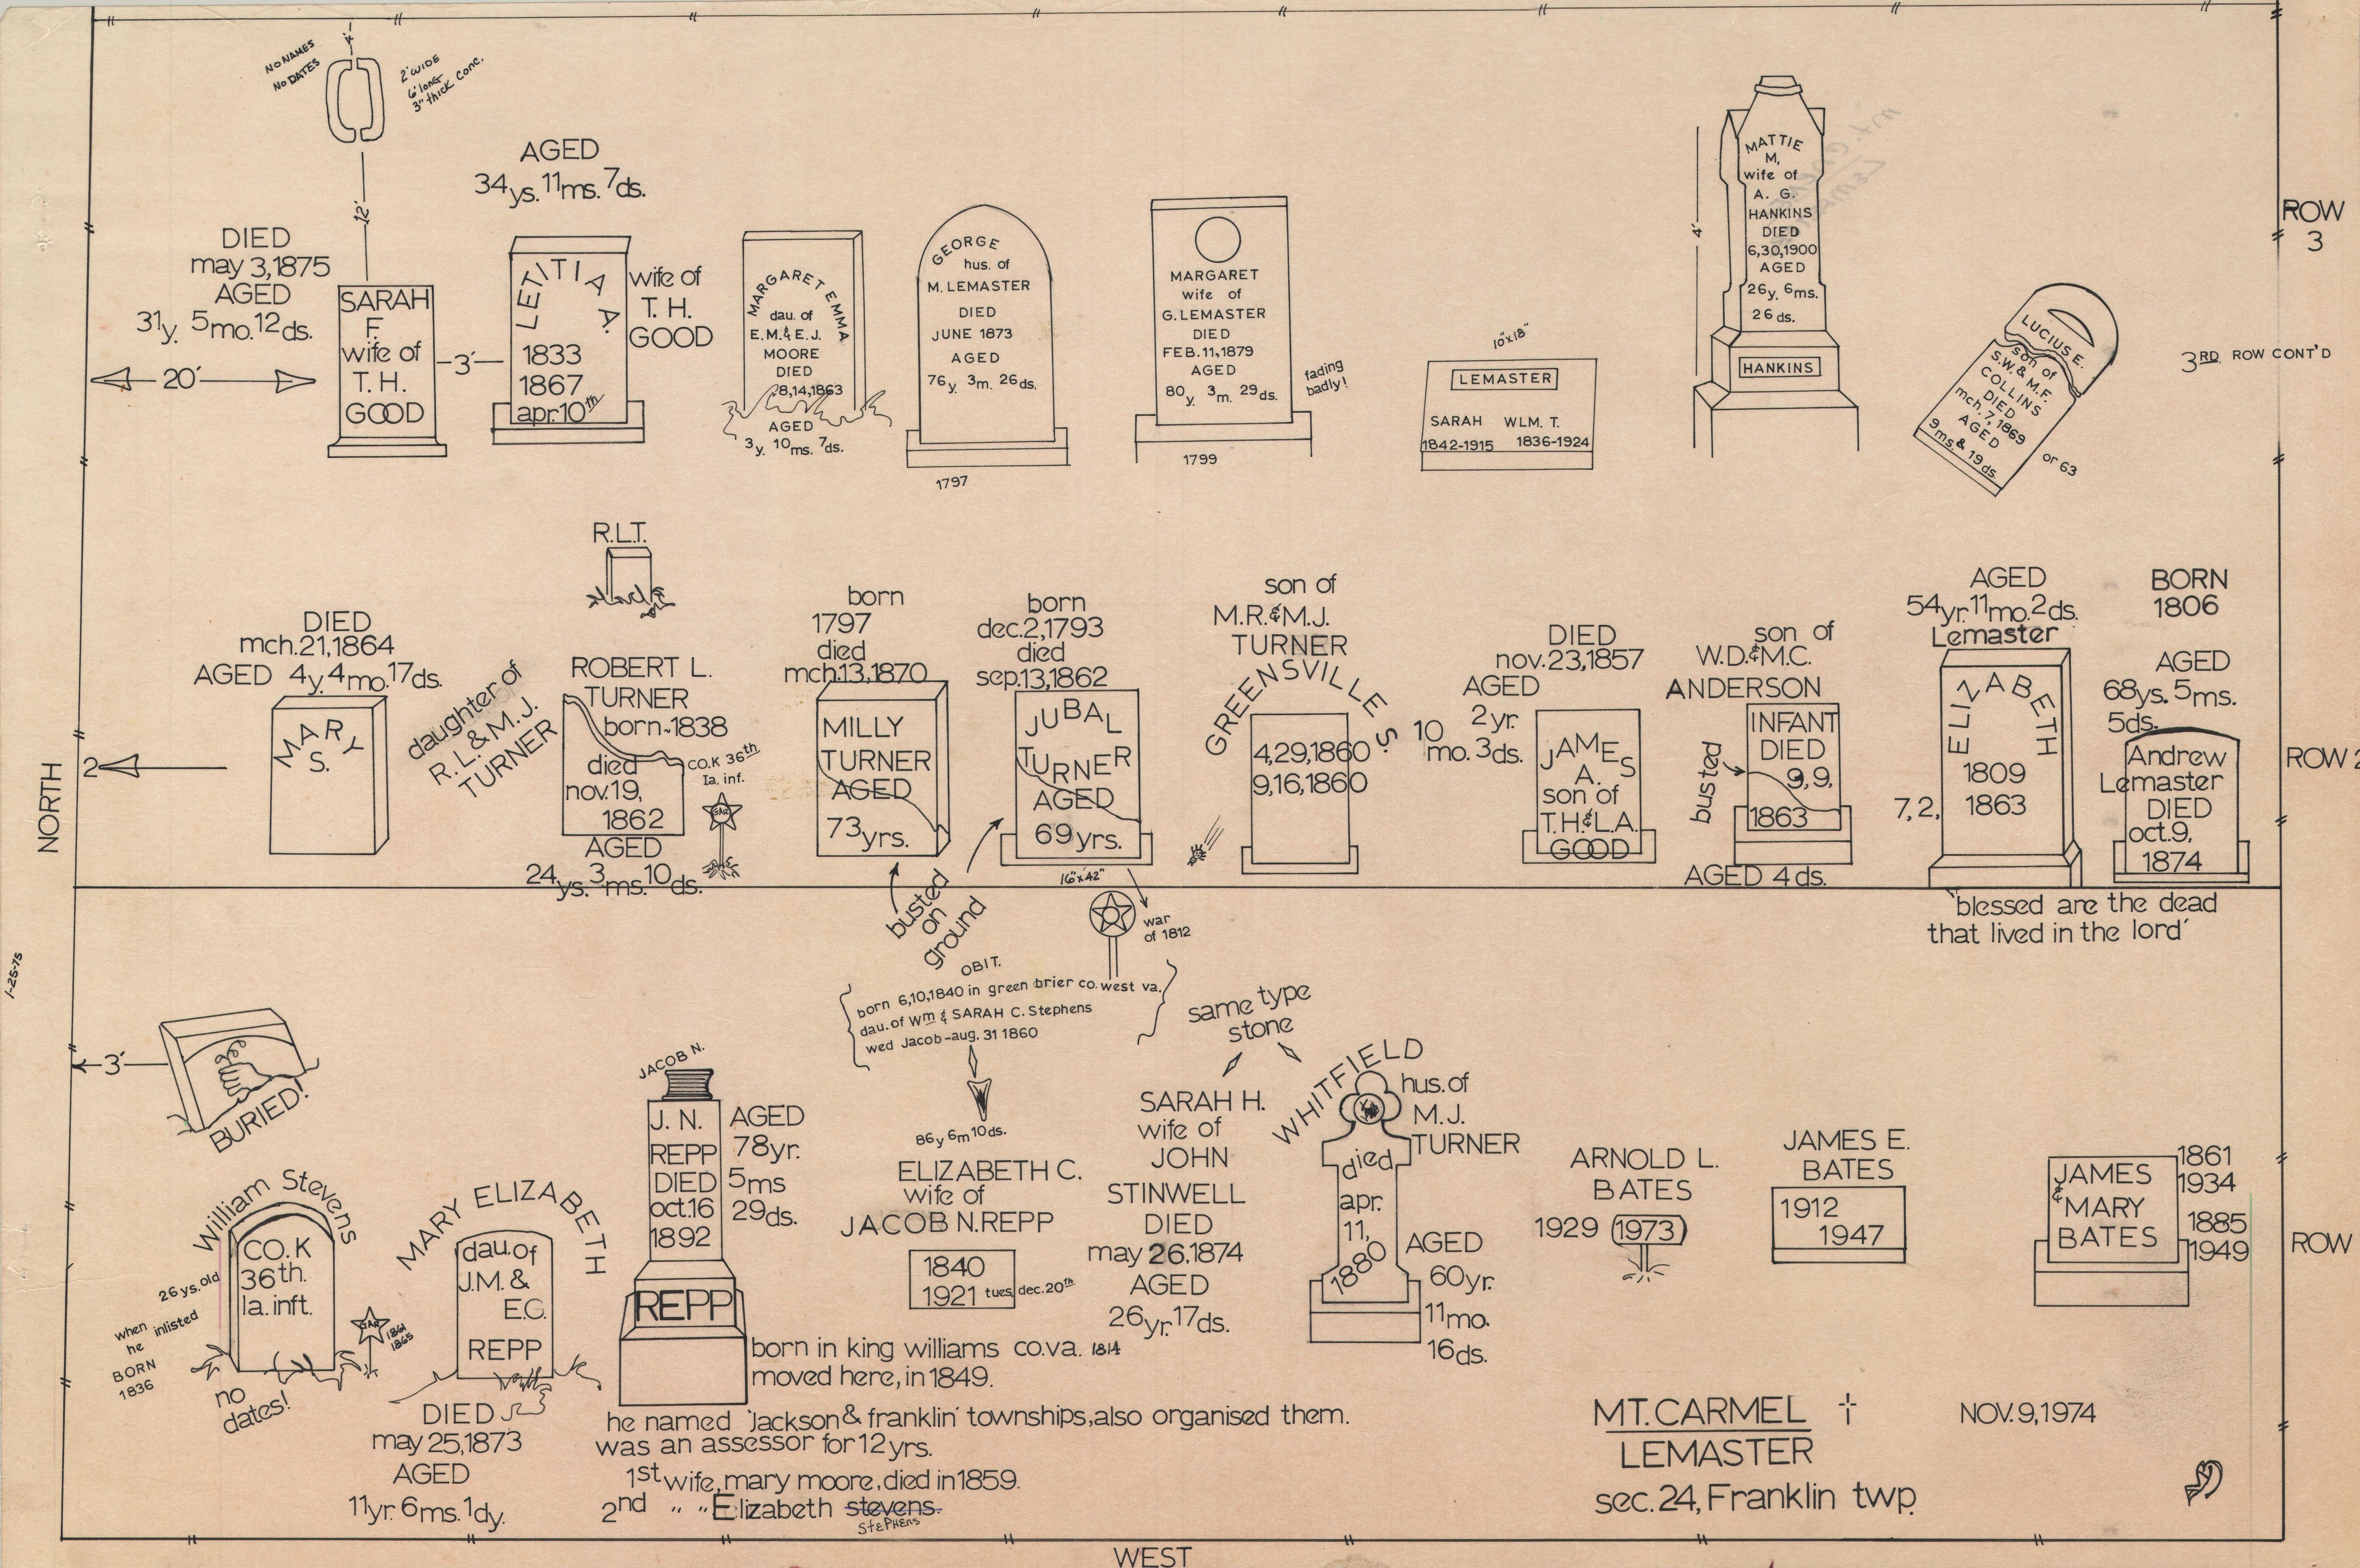 NO NAMES
NO DATES
4'
2' WIDE
6' long
3" thick conc.
12'
DIED
may 3,1875
AGED
31y. 5mo. 12ds.
20'
SARAH
F.
wife of
T. H.
GOOD
3'
AGED
34ys. 11ms. 7ds.
LETITIA A.
1833
1867
apr. 10th
wife of
T. H.
GOOD
MARGARET EMMA
dau. of
E.M.& E.J.
MOORE
DIED
8,14,1863
AGED
3y. 10ms. 7ds.
GEORGE
hus. of
M. LEMASTER
DIED
JUNE 1873
AGED
76y. 3m. 26ds.
1797
MARGARET
wife of
G. LEMASTER
DIED
FEB. 11, 1879
AGED
80y. 3m. 29ds.
1799
fading
badly!
10"x18"
LEMASTER
SARAH WLM. T.
1842-1915 1836-1924
4'
MATTIE
M,
wife of
A. G.
HANKINS
DIED
6,30,1900
AGED
26y. 6ms.
26 ds.
HANKINS
LUCIUS E.
son of
S.W.& M.F.
COLLINS
DIED
mch. 7, 1869
AGED
9ms.& 19ds.
or 63
ROW
3
3RD. ROW CONT'D
DIED
mch.21,1864
AGED 4y. 4mo. 17ds.
MARY
S.
2
daughter of
R. L. & M. J.
TURNER
R.L.T.
ROBERT L.
TURNER
born~1838
died
nov.19,
1862
AGED
24ys. 3ms. 10ds.
CO.K 36th
Ia. inf.
GAR
born
1797
died
mch.13,1870
MILLY
TURNER
AGED
73yrs.
born
dec.2,1793
died
sep.13,1862
JUBAL
TURNER
AGED
69yrs.
16"x42"
busted
on
ground
war
of 1812
son of
M.R.&M.J.
TURNER
GREENSVILLE S.
4,29,1860
9,16,1860
DIED
nov.23,1857
AGED
2yr.
10 mo. 3ds.
JAMES
A.
son of
T.H.&L.A.
GOOD
son of
W.D.&M.C.
ANDERSON
busted
INFANT
DIED
9,9,
1863
AGED 4ds.
AGED
54yr. 11mo. 2ds.
Lemaster
ELIZABETH
1809
7,2, 1863
"blessed are the dead
that lived in the lord"
BORN
1806
AGED
68ys. 5ms.
5ds.
Andrew
Lemaster
DIED
oct.9,
1874
ROW 2
NORTH
1-25-75
3'
BURIED!
OBIT.
born 6,10,1840 in green brier co. west va.
dau. of Wm & SARAH C. Stephens
wed Jacob - aug. 31 1860
86y 6m 10ds.
ELIZABETH C.
wife of
JACOB N. REPP
1840
1921 tues, dec. 20th
William Stevens
CO. K
36th.
Ia. inft.
26ys. old
when he inlisted
BORN
1836
no
dates!
GAR
1861
1865
MARY ELIZABETH
dau. of
J.M. &
E.C.
REPP
DIED
may 25,1873
AGED
11yr. 6ms. 1dy.
JACOB N.
J. N.
REPP
DIED
oct.16
1892
AGED
78yr.
5ms
29ds.
REPP
born in king williams co.va. 1814
moved here, in 1849.
he named 'Jackson & franklin' townships, also organised them.
was an assessor for 12 yrs.
1st wife, mary moore, died in 1859.
2nd " " Elizabeth stevens.
StePHENS
same type
stone
SARAH H.
wife of
JOHN
STINWELL
DIED
may 26.1874
AGED
26yr. 17ds.
WHITFIELD
hus. of
M.J.
TURNER
died
apr.
11,
1880
AGED
60yr.
11mo.
16ds.
ARNOLD L.
BATES
1929 1973
JAMES E.
BATES
1912
1947
JAMES
&
MARY
BATES
1861
1934
1885
1949
ROW
MT. CARMEL
LEMASTER
sec. 24, Franklin twp.
NOV. 9, 1974
WEST